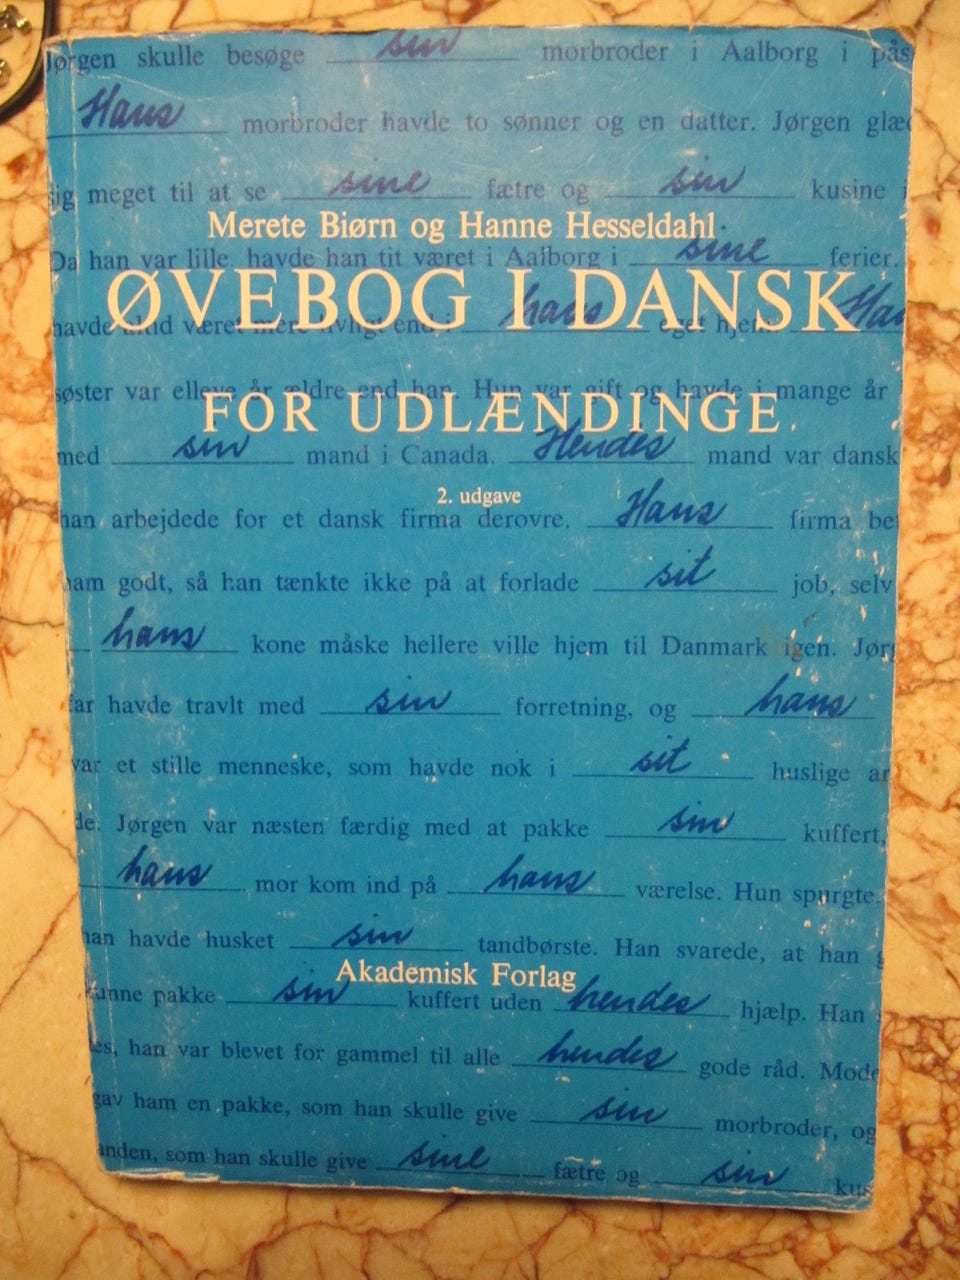 Jørgen skulle besøge sin morbroder i Aalborg i pås
Hans morbroder havde to sønner og en datter. Jørgen glæd
sig meget til at se sine fætre og sin kusine i
Merete Biørn og Hanne Hesseldahl
Da han var lille, havde han tit været i Aalborg i sine ferier.
ØVEBOG I DANSK
havde altid været mere livligt end i hans eget hjem. Han
søster var elleve år ældre end han. Hun var gift og havde i mange år
FOR UDLÆNDINGE
med sin mand i Canada. Hendes mand var dansk
2. udgave
han arbejdede for et dansk firma derovre. Hans firma be
ham godt, så han tænkte ikke på at forlade sit job, selv
hans kone måske hellere ville hjem til Danmark igen. Jørg
far havde travlt med sin forretning, og hans
var et stille menneske, som havde nok i sit huslige ar
de. Jørgen var næsten færdig med at pakke sin kuffert,
hans mor kom ind på hans værelse. Hun spurgte,
han havde husket sin tandbørste. Han svarede, at han g
Akademisk Forlag
kunne pakke sin kuffert uden hendes hjælp. Han
es, han var blevet for gammel til alle hendes gode råd. Mode
gav ham en pakke, som han skulle give sin morbroder, og
anden, som han skulle give sine fætre og sin kus